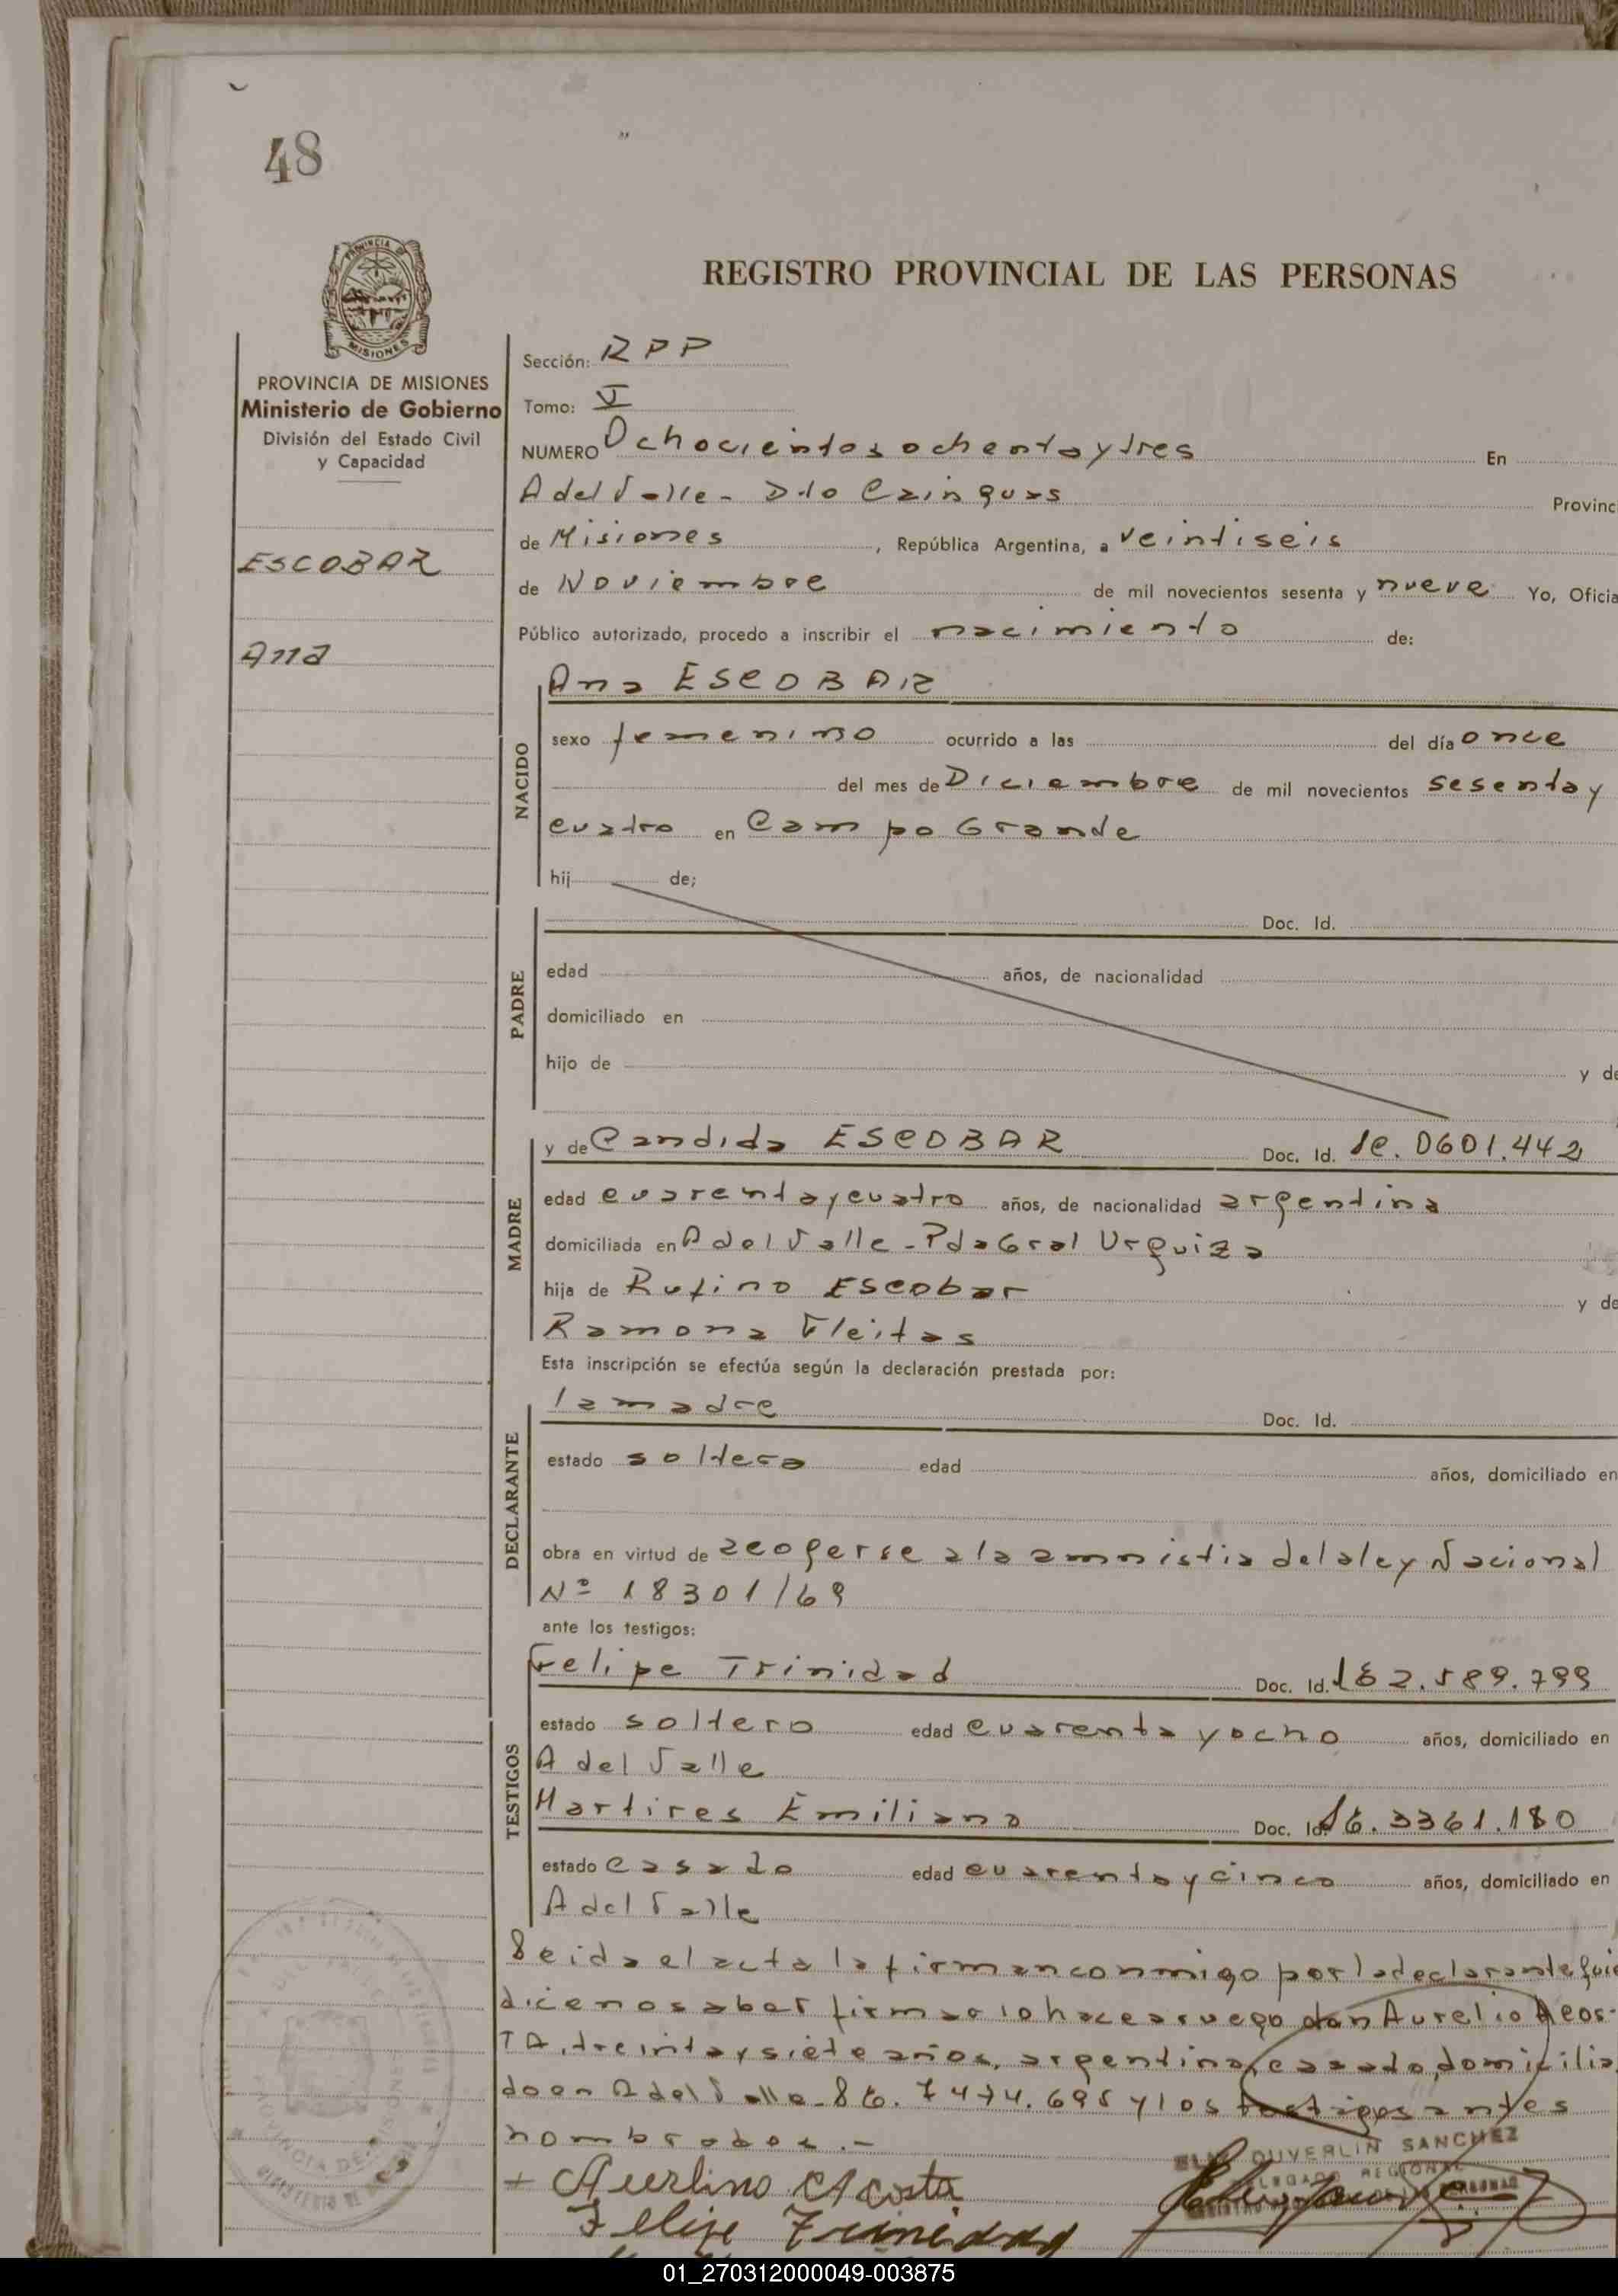 48
REGISTRO PROVINCIAL DE LAS PERSONAS
PROVINCIA DE MISIONES
Ministerio de Gobierno
División del Estado Civil
y Capacidad
ESCOBAR
Ana
Sección: RPP
Tomo: V
NUMERO Ochocientos ochenta y tres En
A del Valle - Dto Cainguas Provinc
de Misiones, República Argentina, a veintiseis
de Noviembre de mil novecientos sesenta y nueve Yo, Oficia
Público autorizado, procedo a inscribir el nacimiento de:
NACIDO
Ana ESCOBAR
sexo femenino ocurrido a las del día once
del mes de Diciembre de mil novecientos sesenta y
cuatro en Campo Grande
hij de;
PADRE
Doc. Id.
edad años, de nacionalidad
domiciliado en
hijo de y de
MADRE
y de Candida ESCOBAR Doc. Id. 0601.442
edad cuarenta y cuatro años, de nacionalidad argentina
domiciliada en A del Valle - Pda Gral Urquiza
hija de Rufino Escobar y de
Ramona Fleitas
Esta inscripción se efectúa según la declaración prestada por:
DECLARANTE
la madre Doc. Id.
estado soltera edad años, domiciliado en
obra en virtud de acogerse a la amnistia de la ley Nacional
Nº 18301/69
ante los testigos:
TESTIGOS
Felipe Trinidad Doc. Id. 2.589.799
estado soltero edad cuarenta y ocho años, domiciliado en
A del Valle
Martires Emiliano Doc. Id. 3361.180
estado casado edad cuarenta y cinco años, domiciliado en
A del Valle
Leida el acta la firman conmigo por la declarante quie
dice no saber firmar lo hace a ruego don Aurelio Acos-
TA, treinta y siete años, argentino, casado, domicilia
do en A del Valle - 7474.695 y los testigos antes
nombrados.-
+ Aurelino Acosta
Felipe Trinidad
DUVERLIN SANCHEZ
DELEGADO REGIONAL
01_270312000049-003875